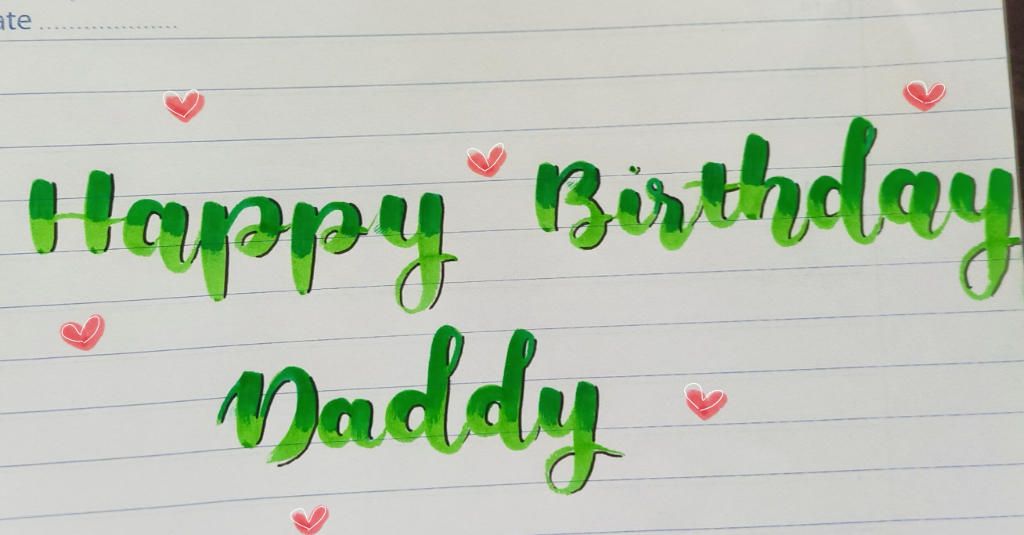 ate ..................
Happy Birthday
Daddy